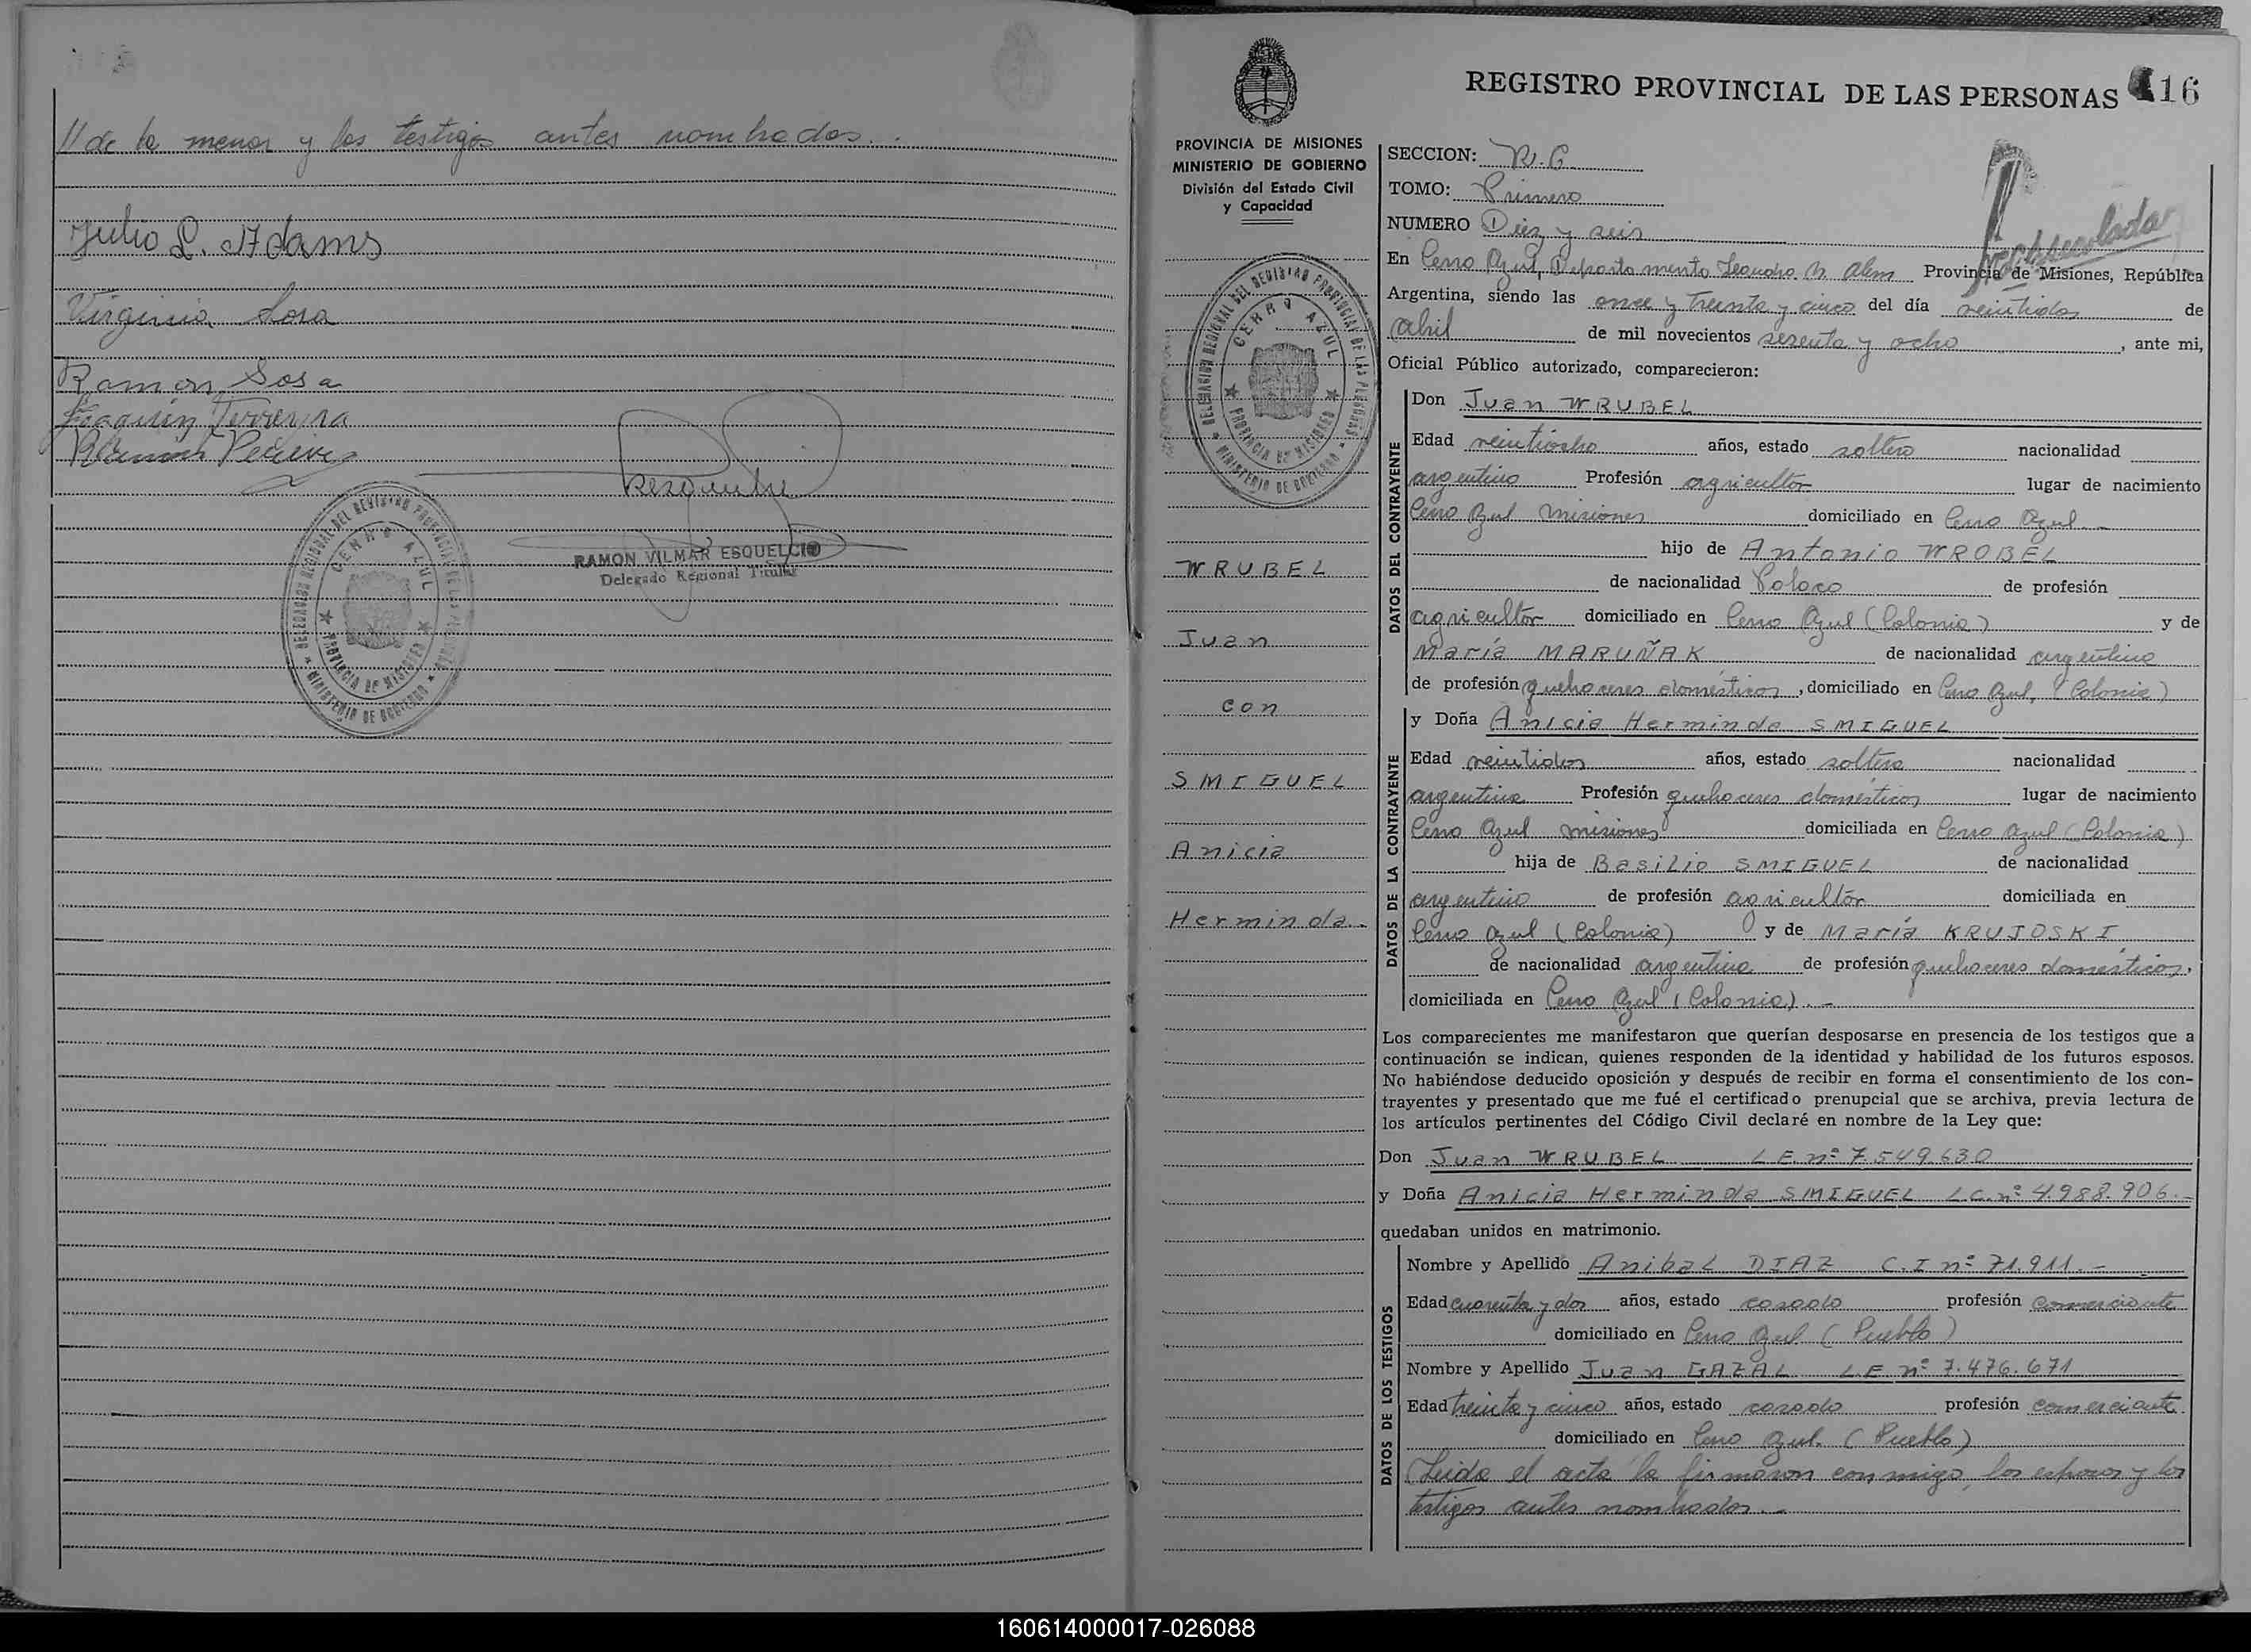 // de la menor y los testigos antes nombrados.-
Julio L. Adams
Virginia Sosa
Ramon Sosa
Joaquin Ferreyra
RAMON VILMAR ESQUELCIO
Delegado Regional Titular
DELEGACION REGIONAL DEL REGISTRO PROVINCIAL DE LAS PERSONAS
CERRO AZUL
PROVINCIA DE MISIONES
MINISTERIO DE GOBIERNO
REGISTRO PROVINCIAL DE LAS PERSONAS 16
PROVINCIA DE MISIONES
MINISTERIO DE GOBIERNO
División del Estado Civil
y Capacidad
DELEGACION REGIONAL DEL REGISTRO PROVINCIAL DE LAS PERSONAS
CERRO AZUL
PROVINCIA DE MISIONES
MINISTERIO DE GOBIERNO
WRUBEL
Juan
con
SMIGUEL
Anicia
Herminda.
SECCION:
TOMO: Primero
NUMERO Diez y seis
En Cerro Azul, Departamento Leandro N. Alem Provincia de Misiones, República
Argentina, siendo las once y treinta y cinco del día veintidos de
abril de mil novecientos sesenta y ocho, ante mi,
Oficial Público autorizado, comparecieron:
DATOS DEL CONTRAYENTE
Don Juan WRUBEL
Edad veintiocho años, estado soltero nacionalidad
argentino Profesión agricultor lugar de nacimiento
Cerro Azul Misiones domiciliado en Cerro Azul.-
hijo de Antonio WROBEL
de nacionalidad Polaco de profesión
agricultor domiciliado en Cerro Azul (Colonia) y de
María MARUÑAK de nacionalidad argentina
de profesión quehaceres domésticos, domiciliado en Cerro Azul, (Colonia)
DATOS DE LA CONTRAYENTE
y Doña Anicia Herminda SMIGUEL
Edad veintidos años, estado soltera nacionalidad
argentina Profesión quehaceres domésticos lugar de nacimiento
Cerro Azul misiones domiciliada en Cerro Azul (Colonia)
hija de Basilio SMIGUEL de nacionalidad
argentino de profesión agricultor domiciliada en
Cerro Azul (Colonia) y de María KRUJOSKI
de nacionalidad argentina de profesión quehaceres domésticos,
domiciliada en Cerro Azul (Colonia).-
Los comparecientes me manifestaron que querían desposarse en presencia de los testigos que a
continuación se indican, quienes responden de la identidad y habilidad de los futuros esposos.
No habiéndose deducido oposición y después de recibir en forma el consentimiento de los con-
trayentes y presentado que me fué el certificado prenupcial que se archiva, previa lectura de
los artículos pertinentes del Código Civil declaré en nombre de la Ley que:
Don Juan WRUBEL L.E. nº 7.549.630
y Doña Anicia Herminda SMIGUEL L.C. nº 4.988.906.-
quedaban unidos en matrimonio.
DATOS DE LOS TESTIGOS
Nombre y Apellido Anibal DIAZ C.I nº 71.911.-
Edad cuarenta y dos años, estado casado profesión comerciante
domiciliado en Cerro Azul (Pueblo)
Nombre y Apellido Juan GAZAL L.E nº 7.476.671
Edad treinta y cinco años, estado casado profesión comerciante
domiciliado en Cerro Azul. (Pueblo)
Leida el acta la firmaron conmigo, los esposos y los
testigos antes nombrados.-
160614000017-026088